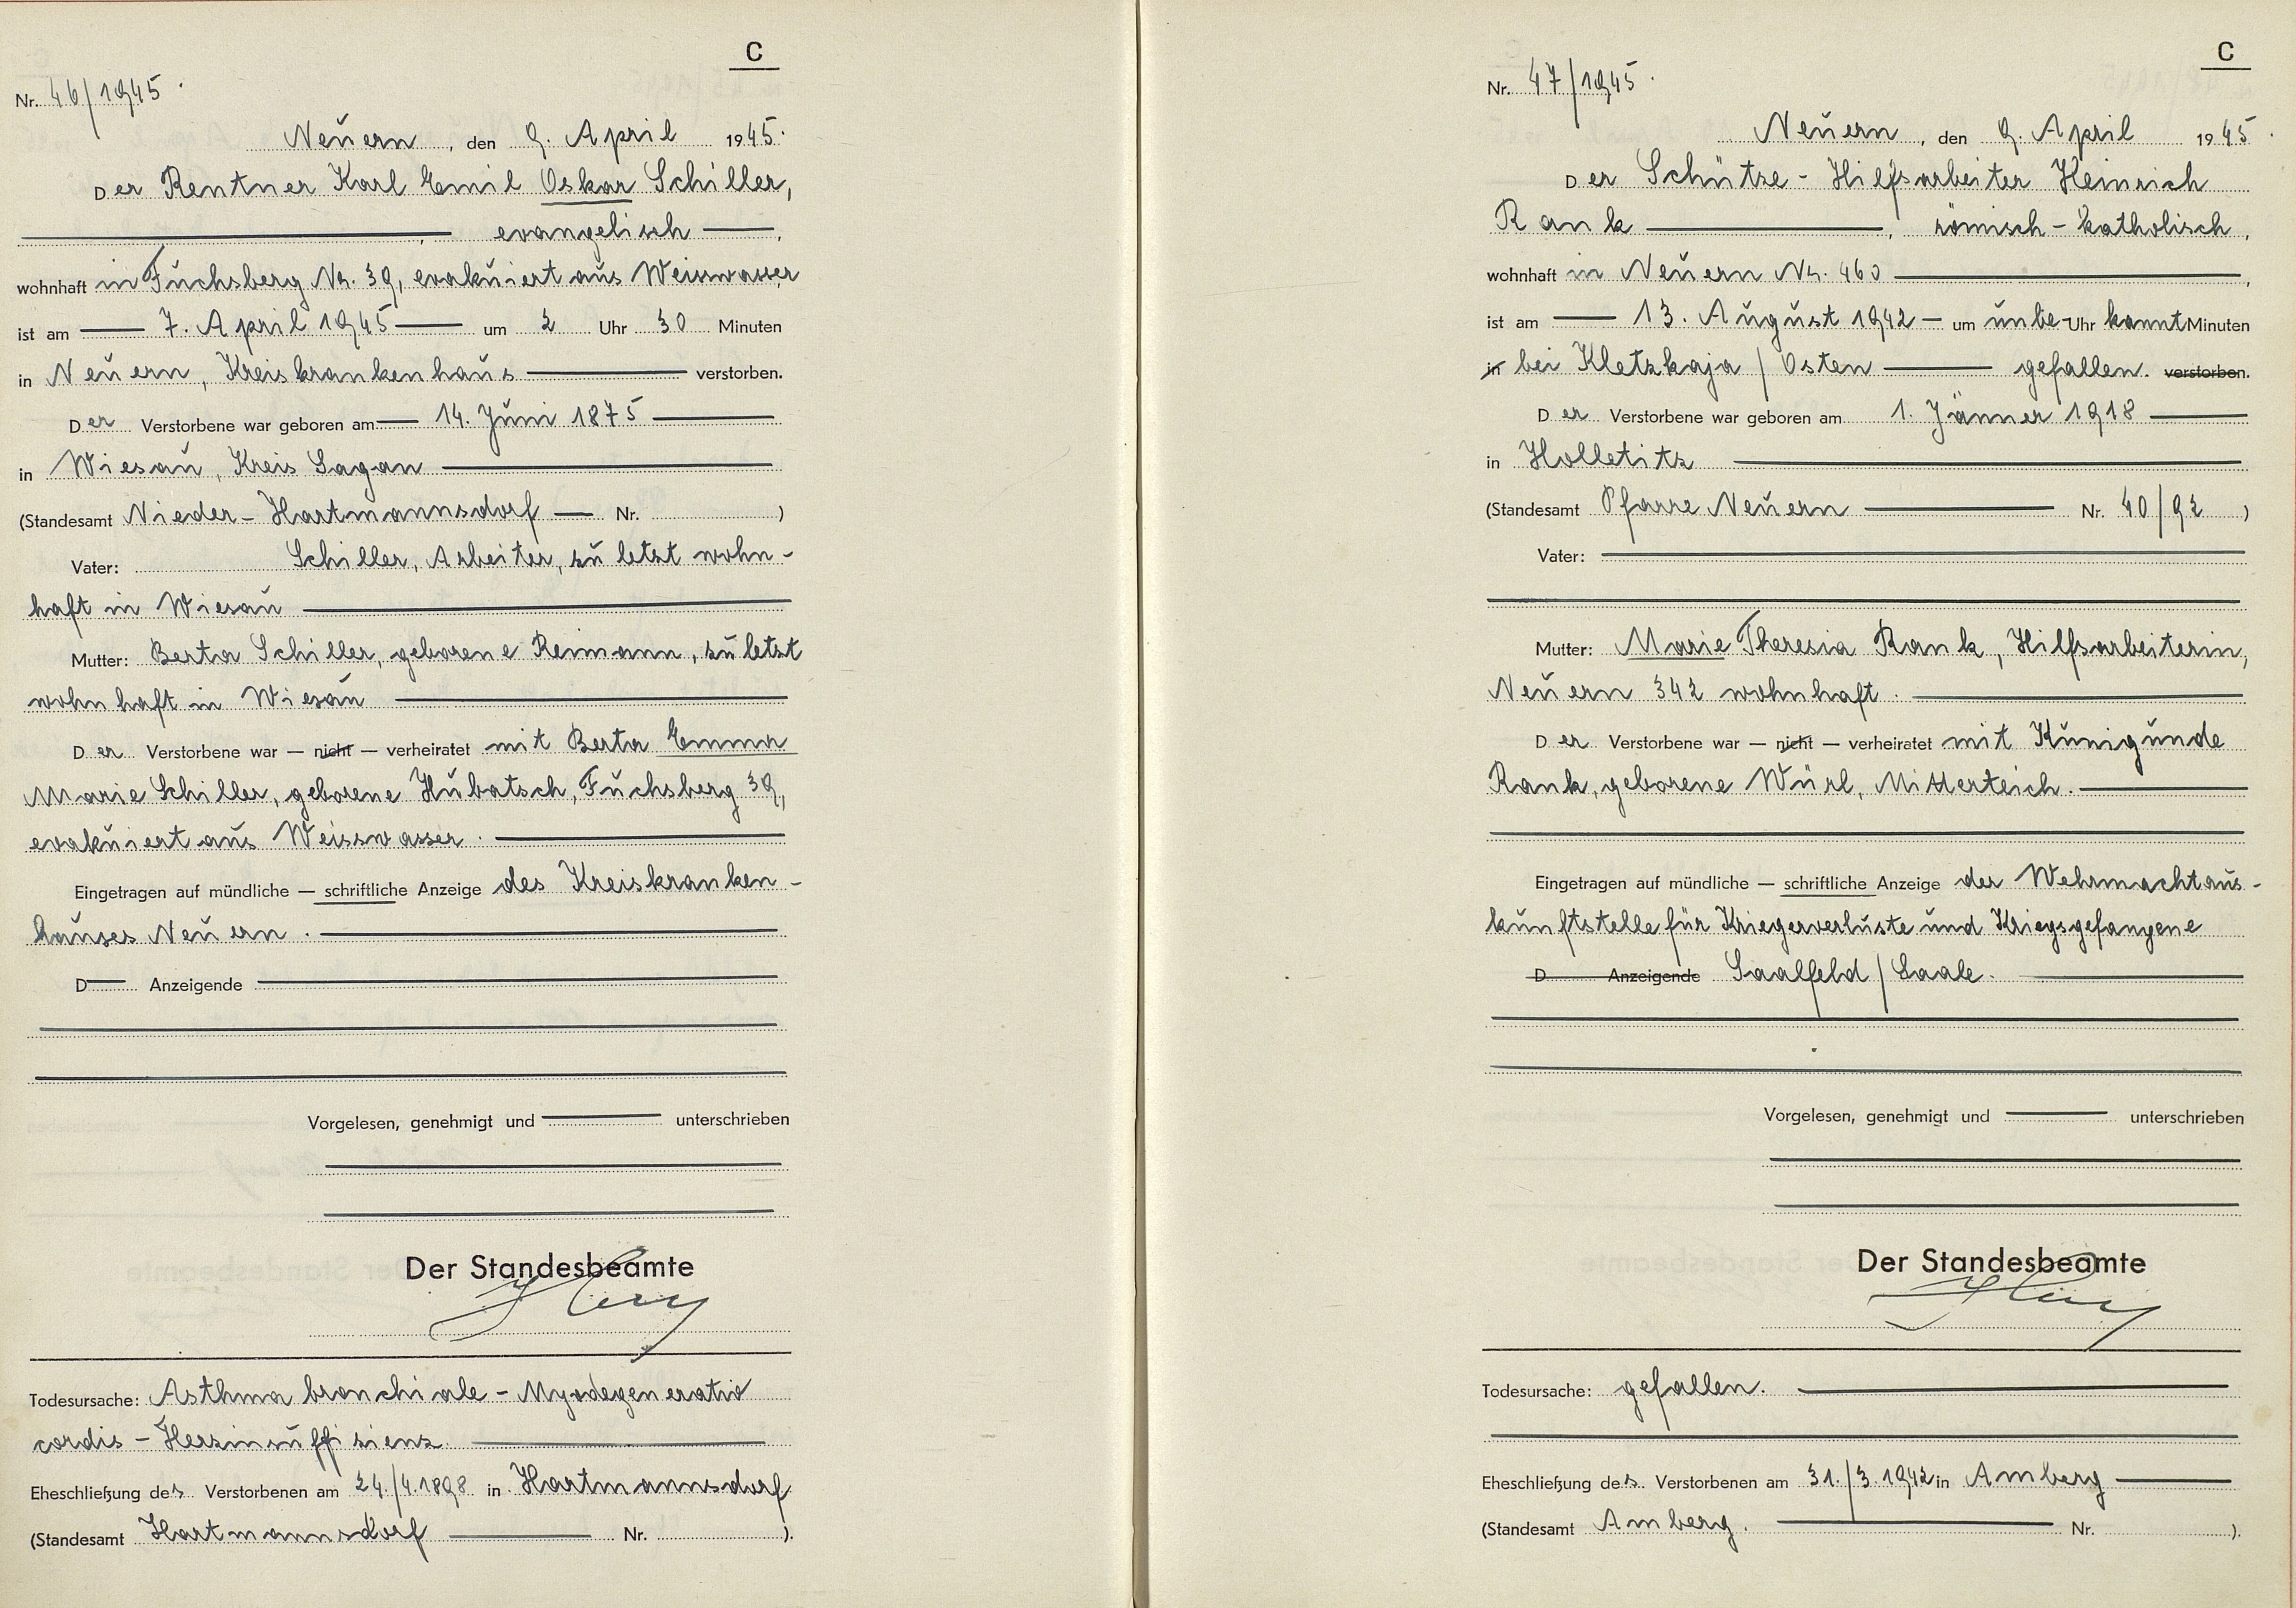 C
Nr. 46/1945.
Neuern, den 9. April 1945.
Der Rentner Karl Emil Oskar Schiller,
evangelisch
wohnhaft in Fuchsberg Nr. 39, evakuiert aus Weisswasser
ist am 7. April 1945 um 2 Uhr 30 Minuten
in Neuern, Kreiskrankenhaus verstorben.
Der Verstorbene war geboren am 14. Juni 1875
in Wiesau, Kreis Sagan
(Standesamt Nieder-Hartmannsdorf Nr. )
Vater: Schiller, Arbeiter, zuletzt wohn-
haft in Wiesau
Mutter: Berta Schiller, geborene Reimann, zuletzt
wohnhaft in Wiesau
Der Verstorbene war — nicht — verheiratet mit Berta Emma
Marie Schiller, geborene Hubatsch, Fuchsberg 39,
evakuiert aus Weisswasser.
Eingetragen auf mündliche — schriftliche Anzeige des Kreiskranken-
hauses Neuern.
D Anzeigende
Vorgelesen, genehmigt und unterschrieben
Der Standesbeamte
Todesursache: Asthma bronchiale - Myodegeneratio
cordis - Herzinsuffizienz
Eheschließung des Verstorbenen am 24./4.1898 in Hartmannsdorf
(Standesamt Hartmannsdorf Nr. ).
C
Nr. 47/1945.
Neuern, den 9. April 1945.
Der Schütze - Hilfsarbeiter Heinrich
Rank, römisch-katholisch,
wohnhaft in Neuern Nr. 460,
ist am 13. August 1942 um unbe- Uhr kannt Minuten
in bei Kletzkaja / Osten gefallen. verstorben.
Der Verstorbene war geboren am 1. Jänner 1918
in Holletitz
(Standesamt Pfarre Neuern Nr. 40/92 )
Vater:
Mutter: Marie Theresia Rank, Hilfsarbeiterin,
Neuern 342 wohnhaft.
Der Verstorbene war — nicht — verheiratet mit Kunigunde
Rank, geborene Würl, Mitterteich.
Eingetragen auf mündliche — schriftliche Anzeige der Wehrmachtaus-
kunftstelle für Kriegerverluste und Kriegsgefangene
D Anzeigende Saalfeld / Saale.
Vorgelesen, genehmigt und unterschrieben
Der Standesbeamte
Todesursache: gefallen.
Eheschließung des Verstorbenen am 31./3.1942 in Amberg
(Standesamt Amberg. Nr. ).